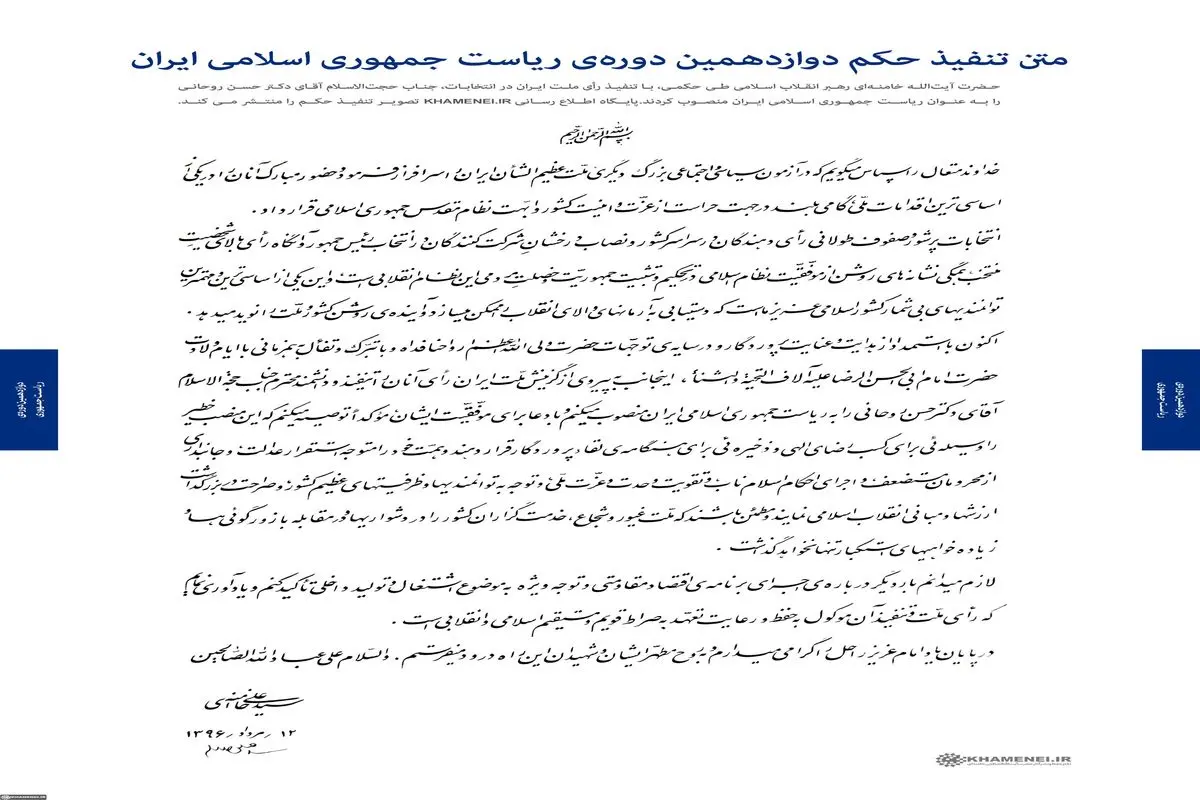 متن تنفیذ حکم دوازدهمین دوره‌ی ریاست جمهوری اسلامی ایران
حضرت آیت‌الله خامنه‌ای رهبر انقلاب اسلامی طی حکمی، با تنفیذ رأی ملت ایران در انتخابات، جناب حجت‌الاسلام آقای دکتر حسن روحانی
را به عنوان ریاست جمهوری اسلامی ایران منصوب کردند.پایگاه اطلاع رسانی KHAMENEI.IR تصویر تنفیذ حکم را منتشر می کند.
بسم الله الرحمن الرحیم
خداوند متعال را سپاس میگویم که در آزمون سیاسی و اجتماعی بزرگ دیگری ملت عظیم‌الشأن ایران را سرافراز فرمود و حضور مبارک آنان را در یکی از
اساسی‌ترین اقدامات ملی، گامی بلند در جهت حراست از عزّت و امنیت کشور و ابهت نظام مقدس جمهوری اسلامی قرار داد .
انتخابات پرشور و صفوف طولانی رأی دهندگان در سراسر کشور و نصاب درخشان شرکت کنندگان در انتخاب رئیس جمهور و آنگاه رأی بالای شخصیت
منتخب، همگی نشانه‌های روشن از موفقیّت نظام اسلامی در تحکیم و تثبیت جمهوریت و خصلت مردمی این نظام انقلابی است؛ و این یکی از اساسی‌ترین و مهمترین
توانمندیهای بی‌شمار کشور اسلامی عزیز ما است که دستیابی به آرمانهای والای انقلاب را ممکن میسازد و آینده‌ی روشن کشور و ملت را نوید میدهد .
اکنون با استمداد از هدایت و عنایت پروردگار و در سایه‌ی توجهات حضرت ولی الله اعظم روحنا فداه و با تبرک و تفأل به همزمانی با ایام ولادت
حضرت امام ابی الحسن الرضا علیه آلاف التحیة و الثناء ، اینجانب به پیروی از گزینش ملت ایران رأی آنان را تنفیذ و دانشمند محترم جناب حجةالاسلام
آقای دکتر حسن روحانی را به ریاست جمهوری اسلامی ایران منصوب میکنم و با دعا برای موفقیت ایشان مؤکداً توصیه میکنم که این منصب خطیر
را وسیله‌ئی برای کسب رضای الهی و ذخیره‌ئی برای هنگامه‌ی لقاء پروردگار قرار دهند و همت خود را متوجه استقرار عدالت و جانبداری
از محرومان و مستضعفان و اجرای احکام اسلام ناب و تقویت وحدت و عزت ملّی و توجه به توانمندیها و ظرفیتهای عظیم کشور و صراحت در بزرگداشت
ارزشها و مبانی انقلاب اسلامی نمایند و مطمئن باشند که ملت غیور و شجاع ، خدمتگزاران کشور را در دشواریها و در مقابله با زورگوئی‌ها و
زیاده‌خواهیهای استکبار تنها نخواهد گذاشت .
لازم میدانم بار دیگر درباره‌ی اجرای برنامه‌ی اقتصاد مقاومتی و توجه ویژه به موضوع اشتغال و تولید داخلی تأکید کنم و یادآوری نمایم
که رأی ملت و تنفیذ آن موکول به حفظ و رعایت تعهد به صراط قویم و مستقیم اسلامی و انقلابی است .
در پایان یاد امام عزیز راحل را گرامی میدارم و به روح مطهر ایشان و شهیدان این راه درود میفرستم . والسلام علی عباد الله الصالحین
سید علی خامنه‌ای
۱۲ مرداد ۱۳۹۶
KHAMENEI.IR
دوازدهمین دوره‌ی
ریاست جمهوری
دوازدهمین دوره‌ی
ریاست جمهوری
KHAMENEI.IR